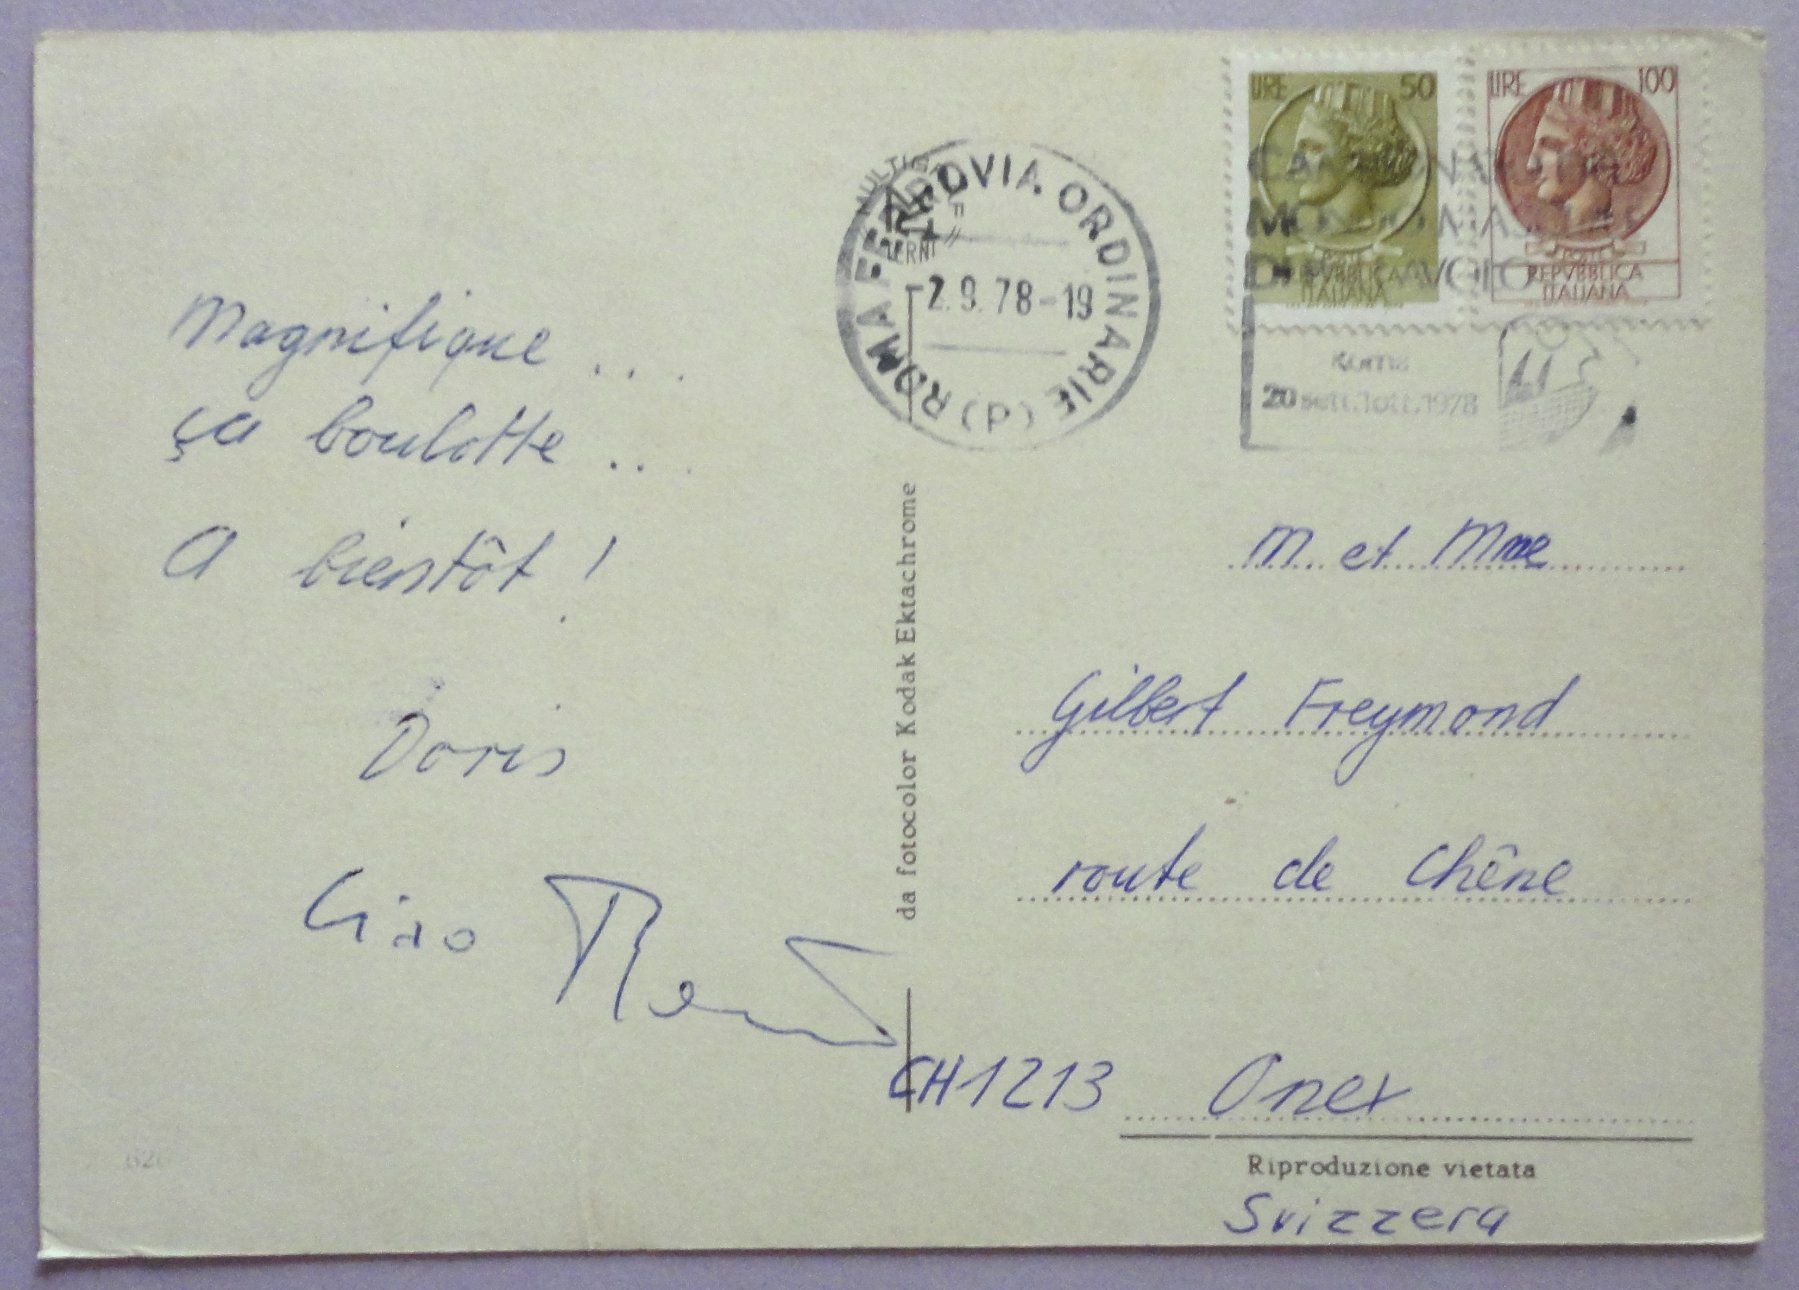 Magnifique ...
ça boulotte ...
A bientôt !
Doris
Ciao
da fotocolor Kodak Ektachrome
ROMA FERROVIA ORDINARIE (P)
2.9.78-19
LIRE 50
REPVBBLICA
ITALIANA
LIRE 100
POSTE
REPVBBLICA
ITALIANA
MONDIALI
DI PALLAVOLO
Roma
20 sett. 1 ott. 1978
M et Mme
Gilbert Freymond
route de Chêne
CH 1213 Onex
Riproduzione vietata
Svizzera